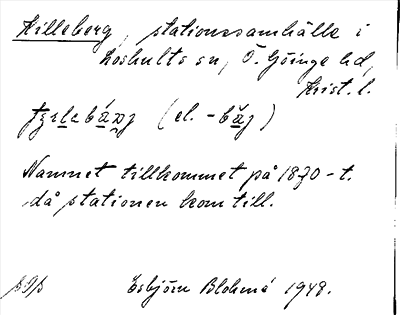 Killeberg, stationssamhälle i
Loshults sn, Ö. Göinge hd,
Krist. l.
(el. -
Namnet tillkommet på 1870-t.
då stationen kom till.
Esbjörn Blohmé 1948.